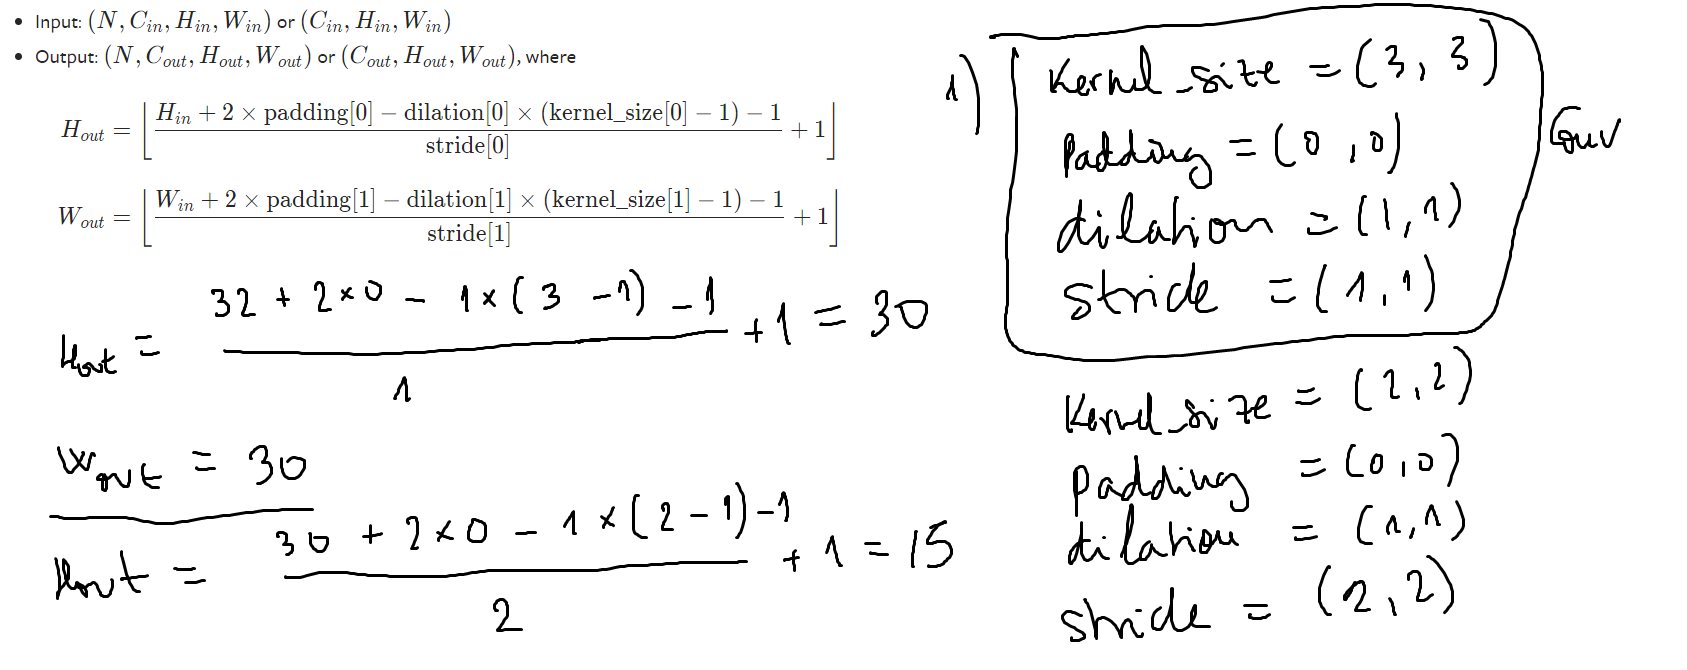 • Input: (N, C_in, H_in, W_in) or (C_in, H_in, W_in)
• Output: (N, C_out, H_out, W_out) or (C_out, H_out, W_out), where
H_out = ⌊ (H_in + 2 × padding[0] − dilation[0] × (kernel_size[0] − 1) − 1) / stride[0] + 1 ⌋
W_out = ⌊ (W_in + 2 × padding[1] − dilation[1] × (kernel_size[1] − 1) − 1) / stride[1] + 1 ⌋
H_out = (32 + 2×0 - 1×(3 - 1) - 1) / 1 + 1 = 30
W_out = 30
H_out = (30 + 2×0 - 1×(2 - 1) - 1) / 2 + 1 = 15
1)
Kernel_size = (3, 3)
Padding = (0, 0)
dilation = (1, 1)
stride = (1, 1)
Conv
Kernel_size = (2, 2)
Padding = (0, 0)
dilation = (1, 1)
stride = (2, 2)